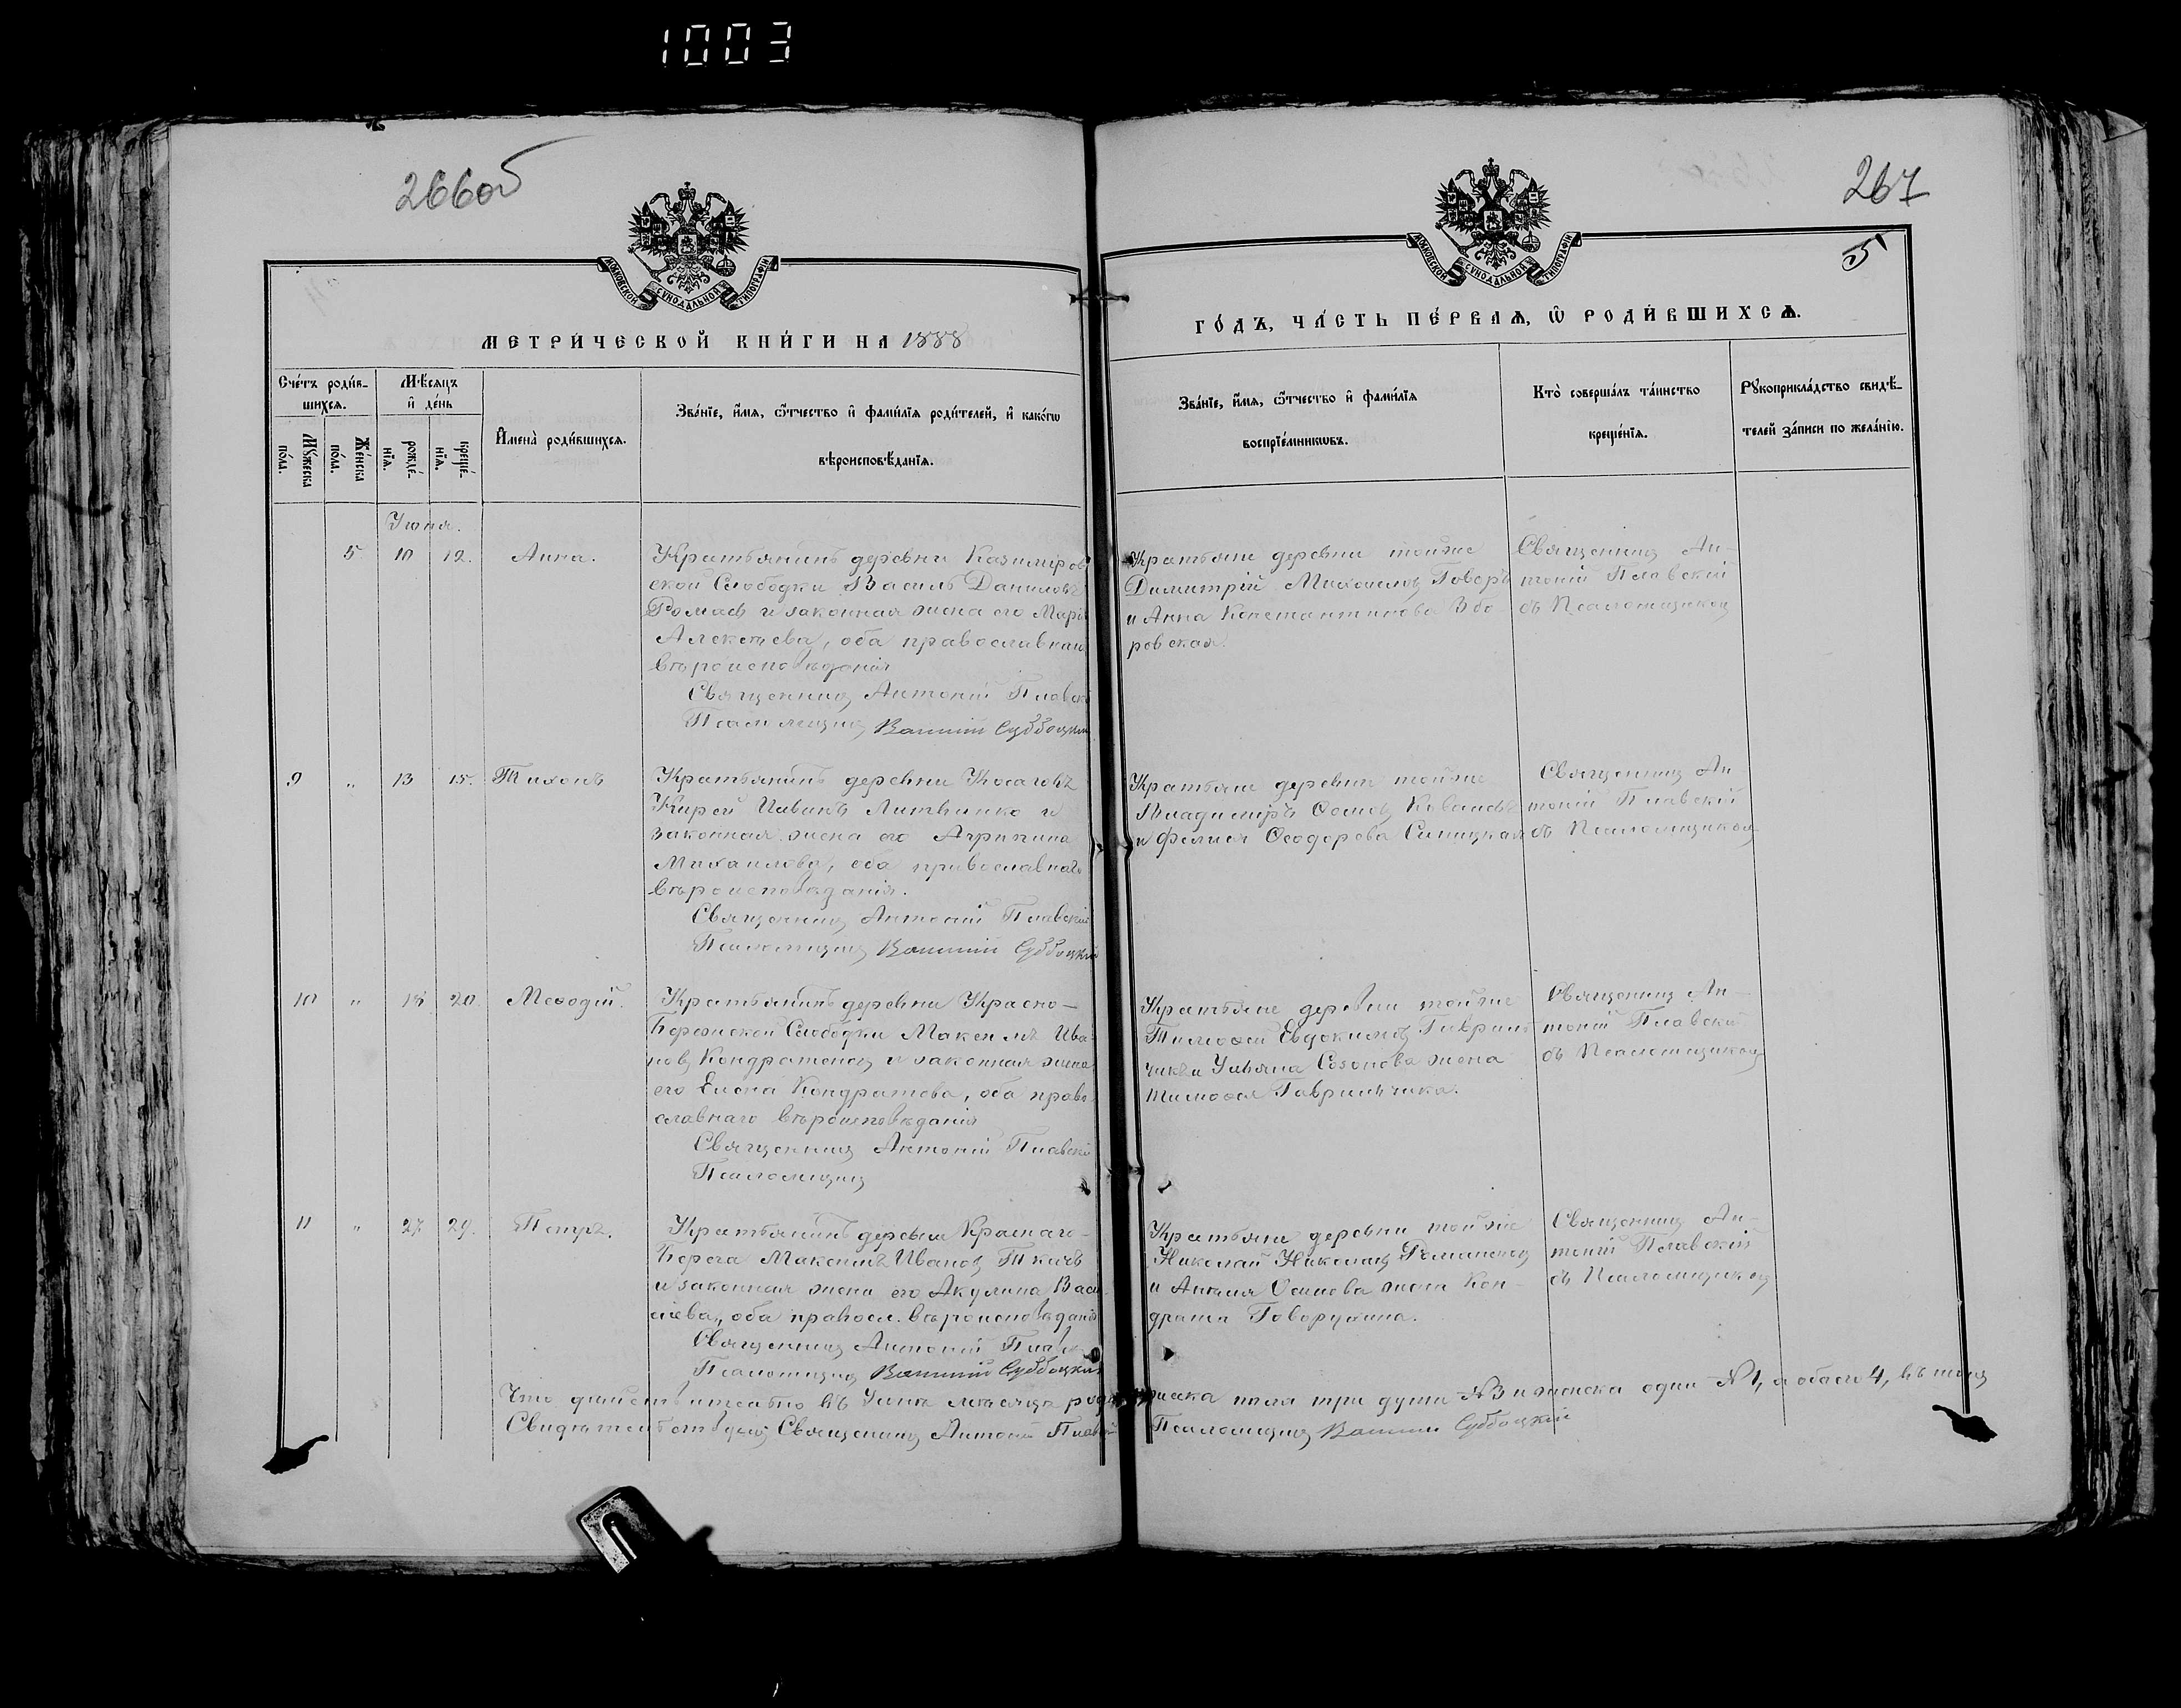 1003
266об
267
5
МОСКОВСКОЙ СУНОДАЛЬНОЙ ТИПОГРАФІИ
МОСКОВСКОЙ СУНОДАЛЬНОЙ ТИПОГРАФІИ
МЕТРИ́ЧЕСКОЙ КНИ́ГИ НА 1888
ГО́ДЪ, ЧА́СТЬ ПЕ́РВАѦ, Ѡ РОДИ́ВШИХСѦ.
Сче́тъ роди́в-
шихсѧ.
Мѣ́сѧцъ
и де́нь
Имена̀ роди́вшихсѧ.
Зва́нїе, и́мѧ, ѻ́тчество и фами́лїѧ роди́телей, и како́гѡ
вѣроисповѣ́данїѧ.
Мꙋ́жеска
по́ла.
Же́нска
по́ла.
рожде́-
нїѧ.
креще́-
нїѧ.
Зва́нїе, и́мѧ, ѻ́тчество и фами́лїѧ
воспрїе́мникѡвъ.
Кто̀ соверша́лъ та́инство
креще́нїѧ.
Рꙋкоприкла́дство свидѣ́-
телей за́писи по жела́нїю.
Іюня.
5 10 12. Анна.
Крестьянинъ деревни Казимиров
ской Слободки Василь Даниловъ
Ромась и законная жена его Марія
Алексѣева, оба православнаго
вѣроисповѣданія
Священникъ Антоній Плавскій
Псаломщикъ Суббоцкій
Крестьяне деревни тойже
Димитрій Михаиловъ Говоръ
и Анна Константинова Збо-
ровская.
Священникъ Ан-
тоній Плавскій
съ Псаломщикомъ
9 " 13 15. Тихонъ
Крестьянинъ деревни
Кирей Ивановъ Литвинко и
законная жена его Агрипина
Михаилова, оба православнаго
вѣроисповѣданія.
Священникъ Антоній Плавскій
Псаломщикъ Суббоцкій
Крестьяне деревни тойже
Владиміръ Осиповъ
и Ѳеодорова Синицкая
Священникъ Ан
тоній Плавскій
съ Псаломщикомъ
10 " 15 20. Меѳодій.
Крестьянинъ деревни Красно-
Бережской Слободки Максимъ Ива-
новъ Кондратенокъ и законная жена
его Елена Кондратова, оба право-
славнаго вѣроисповѣданія
Священникъ Антоній Плавскій
Псаломщикъ
Крестьяне деревни тойже
Тимоѳей Евдокимовъ Гаврил-
чикъ и Ульяна Созонова жена
Тимоѳея Гаврильчика.
Священникъ Ан-
тоній Плавскій
съ Псаломщикомъ
11 " 27 29. Петръ.
Крестьянинъ деревни Краснаго-
Берега Максимъ Ивановъ Ткачъ
и законная жена его Акулина Васи-
лiева, оба правосл. вѣроисповѣданія
Священникъ Антоній
Псаломщикъ Суббоцкій
Крестьяне деревни тойже
Николай Романенокъ
и Осипова жена Кон-
драта
Священникъ Ан-
тоній Плавскій
съ Псаломщикомъ
Что дѣйствительно въ Іюнѣ мѣсяцѣ мужеска пола три души №3 и женска одна №1, а обоего 4, въ томъ
Свидѣтельствуемъ Священникъ Антоній Псаломщикъ Суббоцкій